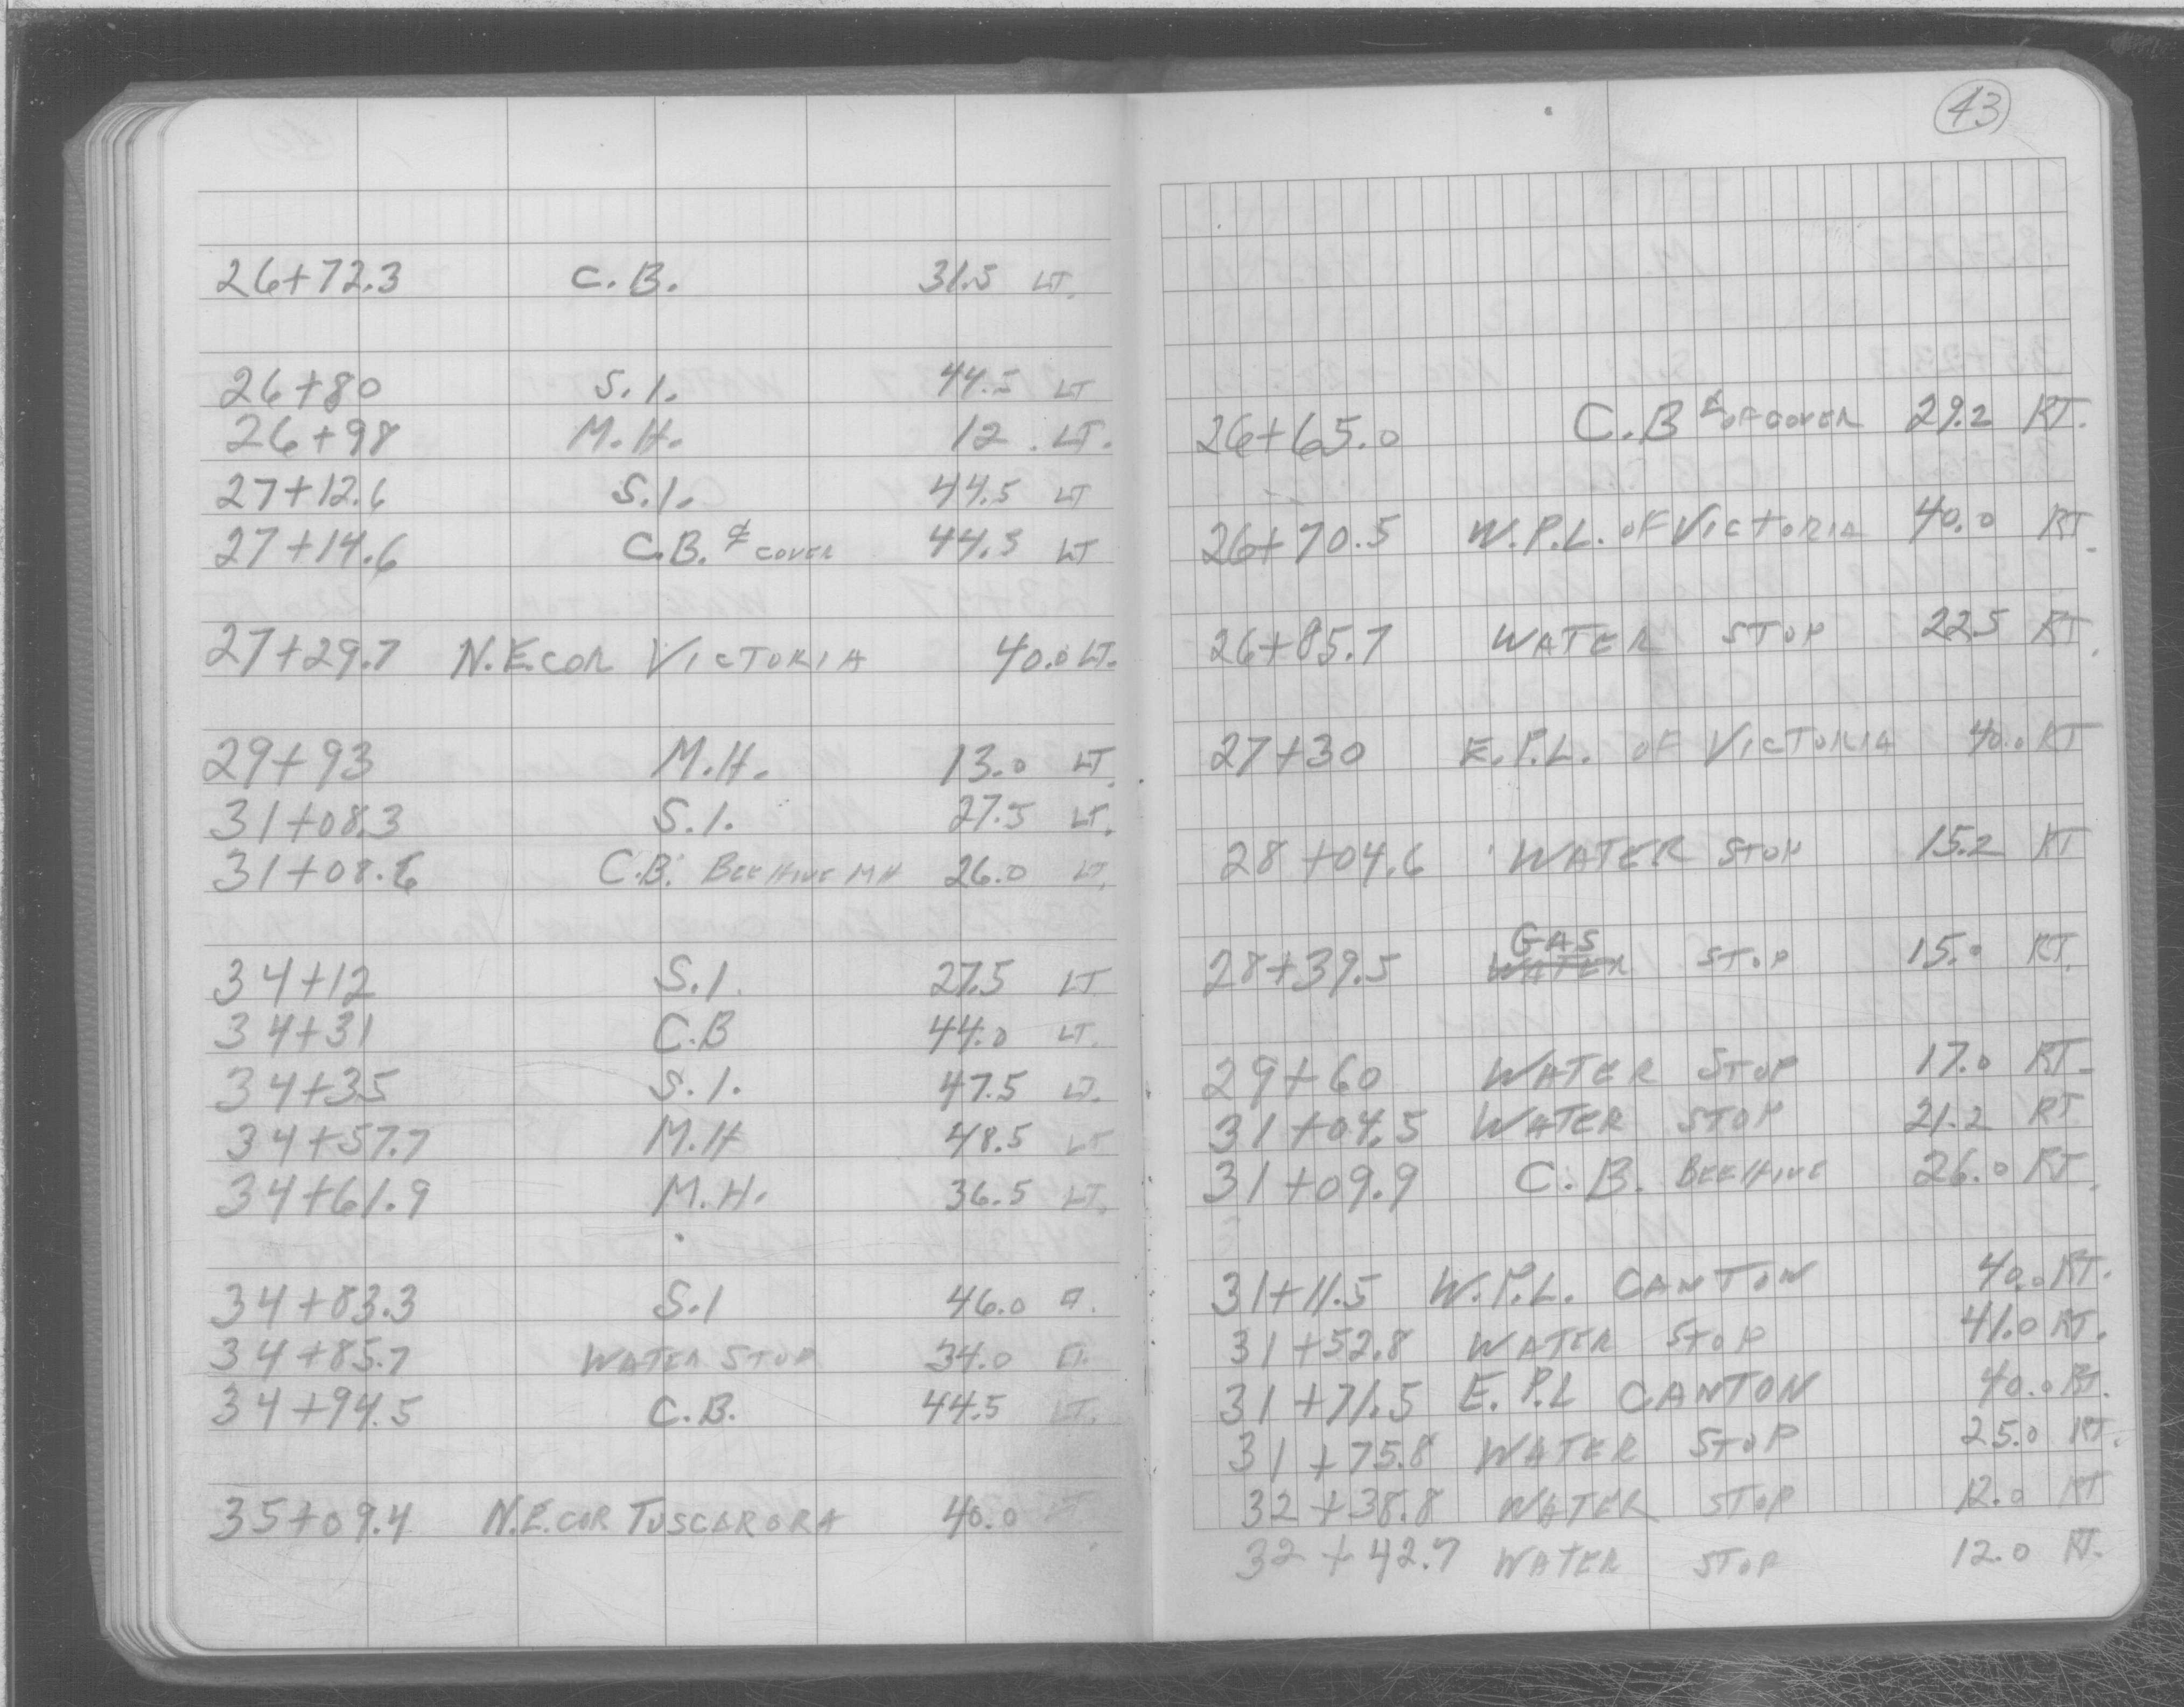 26+72.3 C.B. 31.5 LT.
26+80 S.I. 44.5 LT
26+98 M.H. 12. LT.
27+12.6 S.I. 44.5 LT
27+14.6 C.B. ℄ COVER 44.5 LT
27+29.7 N.E.COR VICTORIA 40.0 LT.
29+93 M.H. 13.0 LT.
31+08.3 S.I. 27.5 LT.
31+08.6 C.B. BEEHIVE MH 26.0 LT.
34+12 S.I. 27.5 LT
34+31 C.B 44.0 LT.
34+35 S.I. 47.5 LT.
34+57.7 M.H 48.5 LT
34+61.9 M.H. 36.5 LT.
34+83.3 S.I 46.0 LT.
34+85.7 WATER STOP 34.0 LT.
34+94.5 C.B. 44.5 LT.
35+09.4 N.E.COR TUSCARORA 40.0 LT.
43
26+65.0 C.B ℄ OF COVER 29.2 RT.
26+70.5 W.P.L. OF VICTORIA 40.0 RT.
26+85.7 WATER STOP 22.5 RT.
27+30 E.P.L. OF VICTORIA 40.0 RT
28+04.6 WATER STOP 15.2 RT
GAS
28+39.5 WATER STOP 15.0 RT.
29+60 WATER STOP 17.0 RT.
31+04.5 WATER STOP 21.2 RT.
31+09.9 C.B. BEEHIVE 26.0 RT.
31+11.5 W.P.L. CANTON 40.0 RT.
31+52.8 WATER STOP 41.0 RT.
31+71.5 E.P.L CANTON 40.0 RT.
31+75.8 WATER STOP 25.0 RT.
32+38.8 WATER STOP 12.0 RT
32+42.7 WATER STOP 12.0 RT.